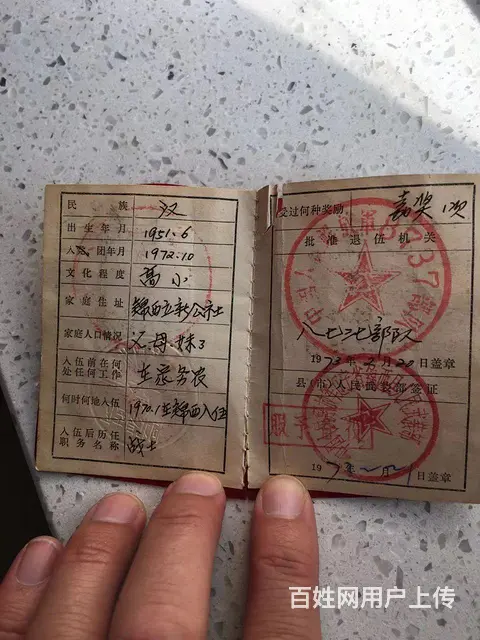 民族 汉
出生年月 1951.6
入团年月 1972.10
文化程度 高小
家庭住址 锦西五新公社
家庭人口情况 父母妹3
入伍前在何处任何工作 在家务农
何时何地入伍 1970.1在锦西入伍
入伍后历任职务名称 战士
受过何种奖励 嘉奖1次
批准退伍机关
八七三七部队
1973年3月20日盖章
县(市)人民武装部签证
197 年 月 日盖章
百姓网用户上传